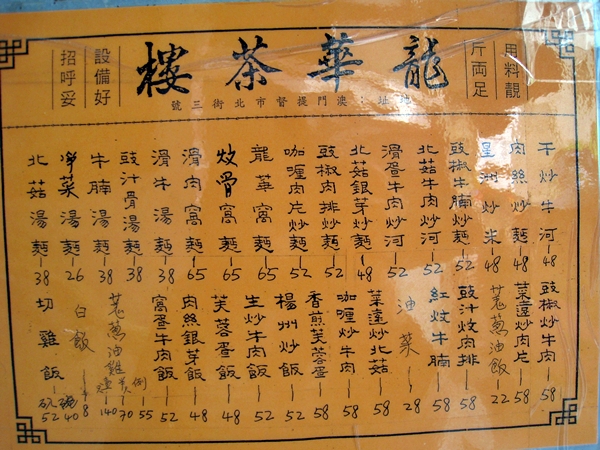 用料靚
斤両足
龍華茶樓
設備好
招呼妥
地址：澳門提督市北街三號
干炒牛河 48
肉絲炒麵 48
星州炒米 48
豉椒牛腩炒麵 52
北菇牛肉炒河 52
滑蛋牛肉炒河 52
北菇銀芽炒麵 48
豉椒肉排炒麵 52
咖喱肉片炒麵 52
龍華窩麵 65
炆骨窩麵 65
滑肉窩麵 65
滑牛湯麵 38
豉汁骨湯麵 38
牛腩湯麵 38
净菜湯麵 26
北菇湯麵 38
豉椒炒牛肉 58
菜遠炒肉片 58
羗蔥油飯 22
豉汁炆肉排 58
紅炆牛腩 58
油菜 28
菜遠炒北菇 58
咖喱炒牛肉 58
香煎芙蓉蛋 58
楊州炒飯 52
生炒牛肉飯 52
芙蓉蛋飯 48
肉絲銀芽飯 48
窩蛋牛肉飯 52
羗蔥油雞 例 55 70 140
白飯 8
切雞飯 40 52